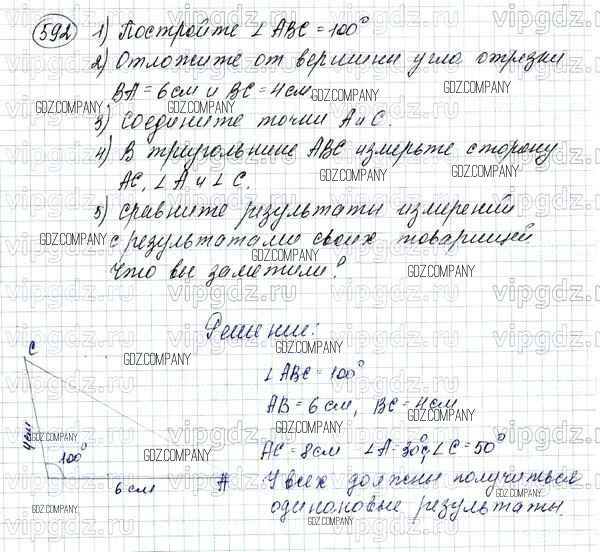 592 1) Постройте ∠ ABC = 100°
2) Отложите от вершины угла отрезки
BA = 6 см и BC = 4 см.
3) Соедините точки A и C.
4) В треугольнике ABC измерьте сторону
AC, ∠ A и ∠ C.
5) Сравните результаты измерений
с результатами своих товарищей
Что вы заметили?
Решение:
C
∠ ABC = 100°
AB = 6 см, BC = 4 см
4 см
100°
AC = 8 см ∠A = 30°, ∠C = 50°
6 см
A
У всех должны получиться
одинаковые результаты.
GDZ.COMPANY
vipgdz.ru